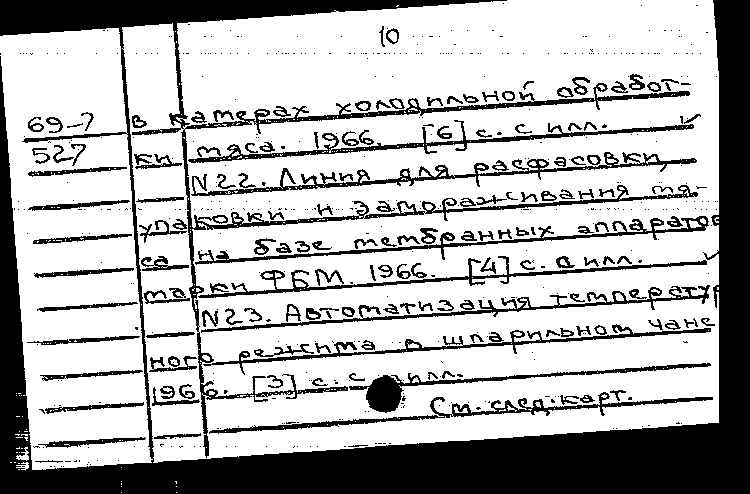 10
69-7 в камерах холодильной обработ-
527 ки мяса. 1966. [6] с. с илл.
N22. Линия для расфасовки,
упаковки и замораживания мя-
са на базе мембранных аппаратов
марки ФБМ. 1966. [4] с. с илл.
N23. Автоматизация температур
ного режима в шпарильном чане
1966. [3] с. с илл.
См. след. карт.